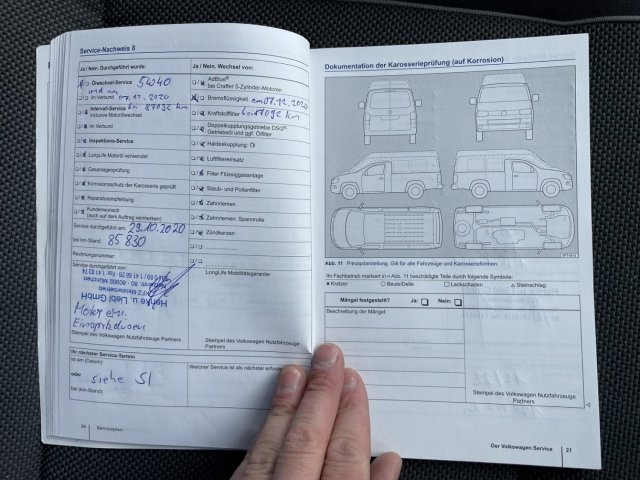 Service-Nachweis 8
Ja / Nein. Durchgeführt wurde:
Ölwechsel-Service 54040
und am
im Verbund 07.12.2020
Intervall-Service bei 87092 km
inklusive Motorölwechsel
im Verbund
Inspektions-Service
LongLife Motoröl verwendet
Gasanlagenprüfung
Korrosionsschutz der Karosserie geprüft
Reparaturempfehlung
Kundenwunsch
(auch auf dem Auftrag vermerken)
Service durchgeführt am 29.10.2020
bei km-Stand: 85 830
Rechnungsnummer:
Service durchgeführt von:
Henke u. Liebl GmbH
KFZ Meisterbetrieb
80992 München
Motor ern.
Stempel des Volkswagen Nutzfahrzeuge
Partners
Ihr nächster Service-Termin
ist am (Datum):
oder siehe SI
bei (km-Stand):
20 Serviceplan
Ja / Nein. Wechsel von:
AdBlue®
bei Crafter 5-Zylinder-Motoren
Bremsflüssigkeit am 07.12.2020
Kraftstofffilter bei 87092 km
Doppelkupplungsgetriebe DSG®
Getriebeöl und ggf. Ölfilter
Haldexkupplung: Öl
Luftfiltereinsatz
Filter Flüssiggasanlage
Staub- und Pollenfilter
Zahnriemen
Zahnriemen: Spannrolle
Zündkerzen
LongLife Mobilitätsgarantie:
Stempel des Volkswagen Nutzfahrzeuge
Partners
Welcher Service ist als nächster
Dokumentation der Karosserieprüfung (auf Korrosion)
Abb. 11 Prinzipdarstellung. Gilt für alle Fahrzeuge und Karosserieformen.
Ihr Fachbetrieb markiert in » Abb. 11 beschädigte Teile durch folgende Symbole:
Kratzer Beule/Delle Lackschaden Steinschlag
Mängel festgestellt? Ja: Nein:
Beschreibung der Mängel
Stempel des Volkswagen Nutzfahrzeuge
Partners
Der Volkswagen Service 21